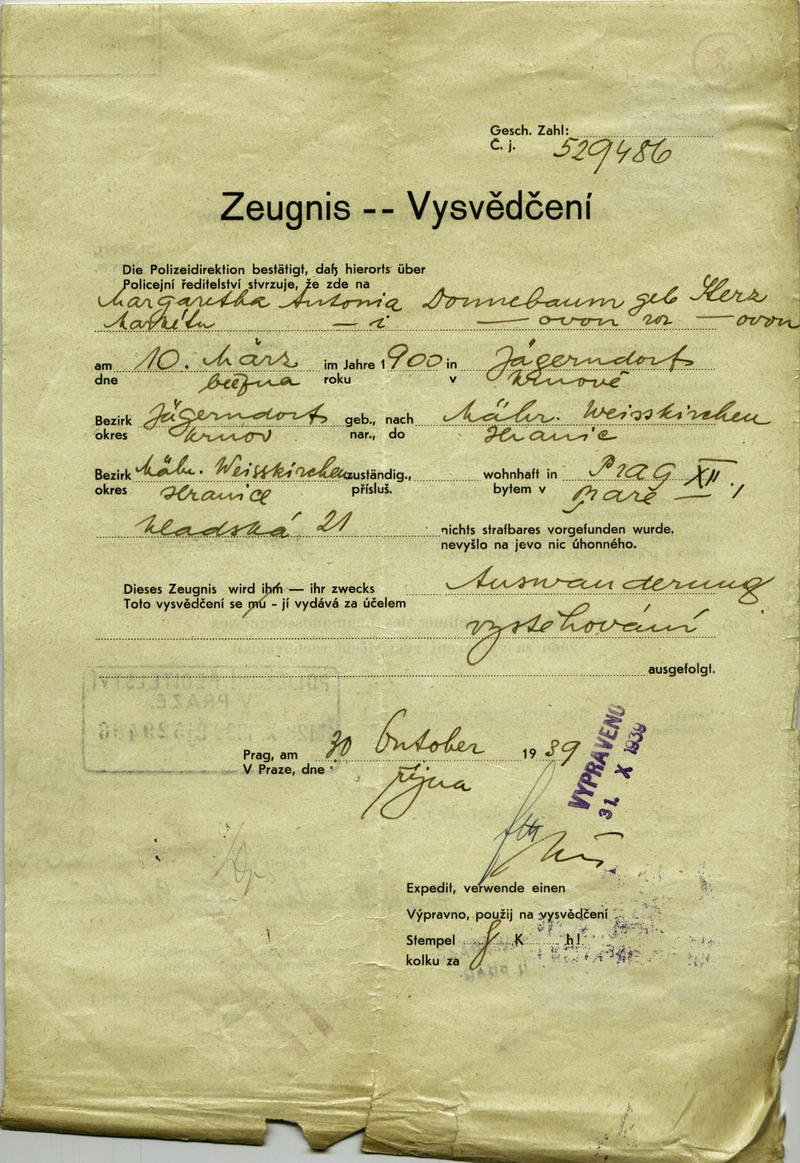 Gesch. Zahl:
Č. j. 529486
Zeugnis -- Vysvědčení
Die Polizeidirektion bestätigt, daß hierorts über
Policejní ředitelství stvrzuje, že zde na
Margaretha Antonia Donnebaum geb Herz
Markétu — i — ovou roz — ovou
am 10. März im Jahre 1900 in Jägerndorf
dne března roku v Krnově
Bezirk Jägerndorf geb., nach Mähr. Weisskirchen
okres Krnov nar., do Hranic
Bezirk Mähr. Weisskirchen zuständig., wohnhaft in Prag XII.,
okres Hranice přísluš. bytem v Praze —
Kladská 21 nichts strafbares vorgefunden wurde.
nevyšlo na jevo nic úhonného.
Dieses Zeugnis wird ihm — ihr zwecks Auswanderung
Toto vysvědčení se mu - jí vydává za účelem
vystěhování
ausgefolgt.
Prag, am 30 Oktober 1939
V Praze, dne října
VYPRAVENO
31. X 1939
Expedit, verwende einen
Výpravno, použij na vysvědčení
Stempel 8 K h!
kolku za